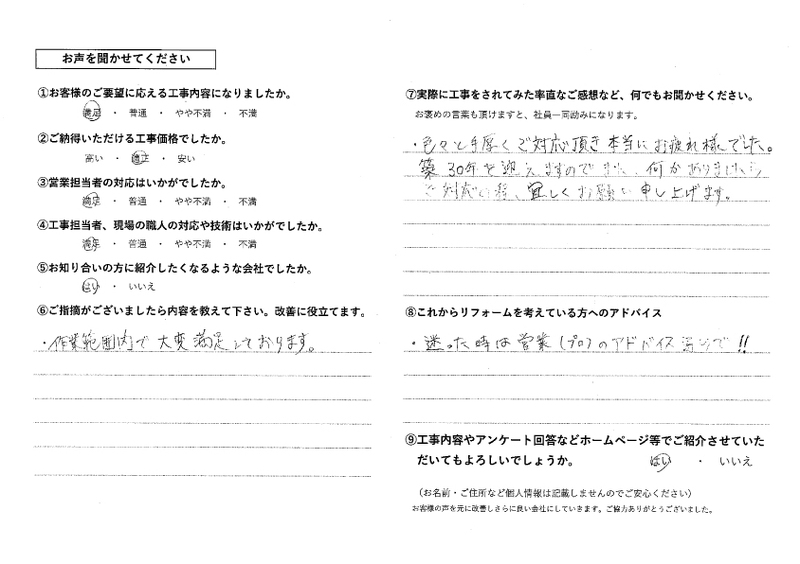 お声を聞かせてください
①お客様のご要望に応える工事内容になりましたか。
満足 ・ 普通 ・ やや不満 ・ 不満
②ご納得いただける工事価格でしたか。
高い ・ 適正 ・ 安い
③営業担当者の対応はいかがでしたか。
満足 ・ 普通 ・ やや不満 ・ 不満
④工事担当者、現場の職人の対応や技術はいかがでしたか。
満足 ・ 普通 ・ やや不満 ・ 不満
⑤お知り合いの方に紹介したくなるような会社でしたか。
はい ・ いいえ
⑥ご指摘がございましたら内容を教えて下さい。改善に役立てます。
・作業範囲内で大変満足しております。
⑦実際に工事をされてみた率直なご感想など、何でもお聞かせください。
お褒めの言葉も頂けますと、社員一同励みになります。
・色々と手厚くご対応頂き本当にお疲れ様でした。
築30年を迎えますのでまた、何かありましたら
ご対応の程、宜しくお願い申し上げます。
⑧これからリフォームを考えている方へのアドバイス
・迷った時は営業(プロ)のアドバイス
⑨工事内容やアンケート回答などホームページ等でご紹介させていた
だいてもよろしいでしょうか。 はい ・ いいえ
（お名前・ご住所など個人情報は記載しませんのでご安心ください）
お客様の声を元に改善しさらに良い会社にしていきます。ご協力ありがとうございました。